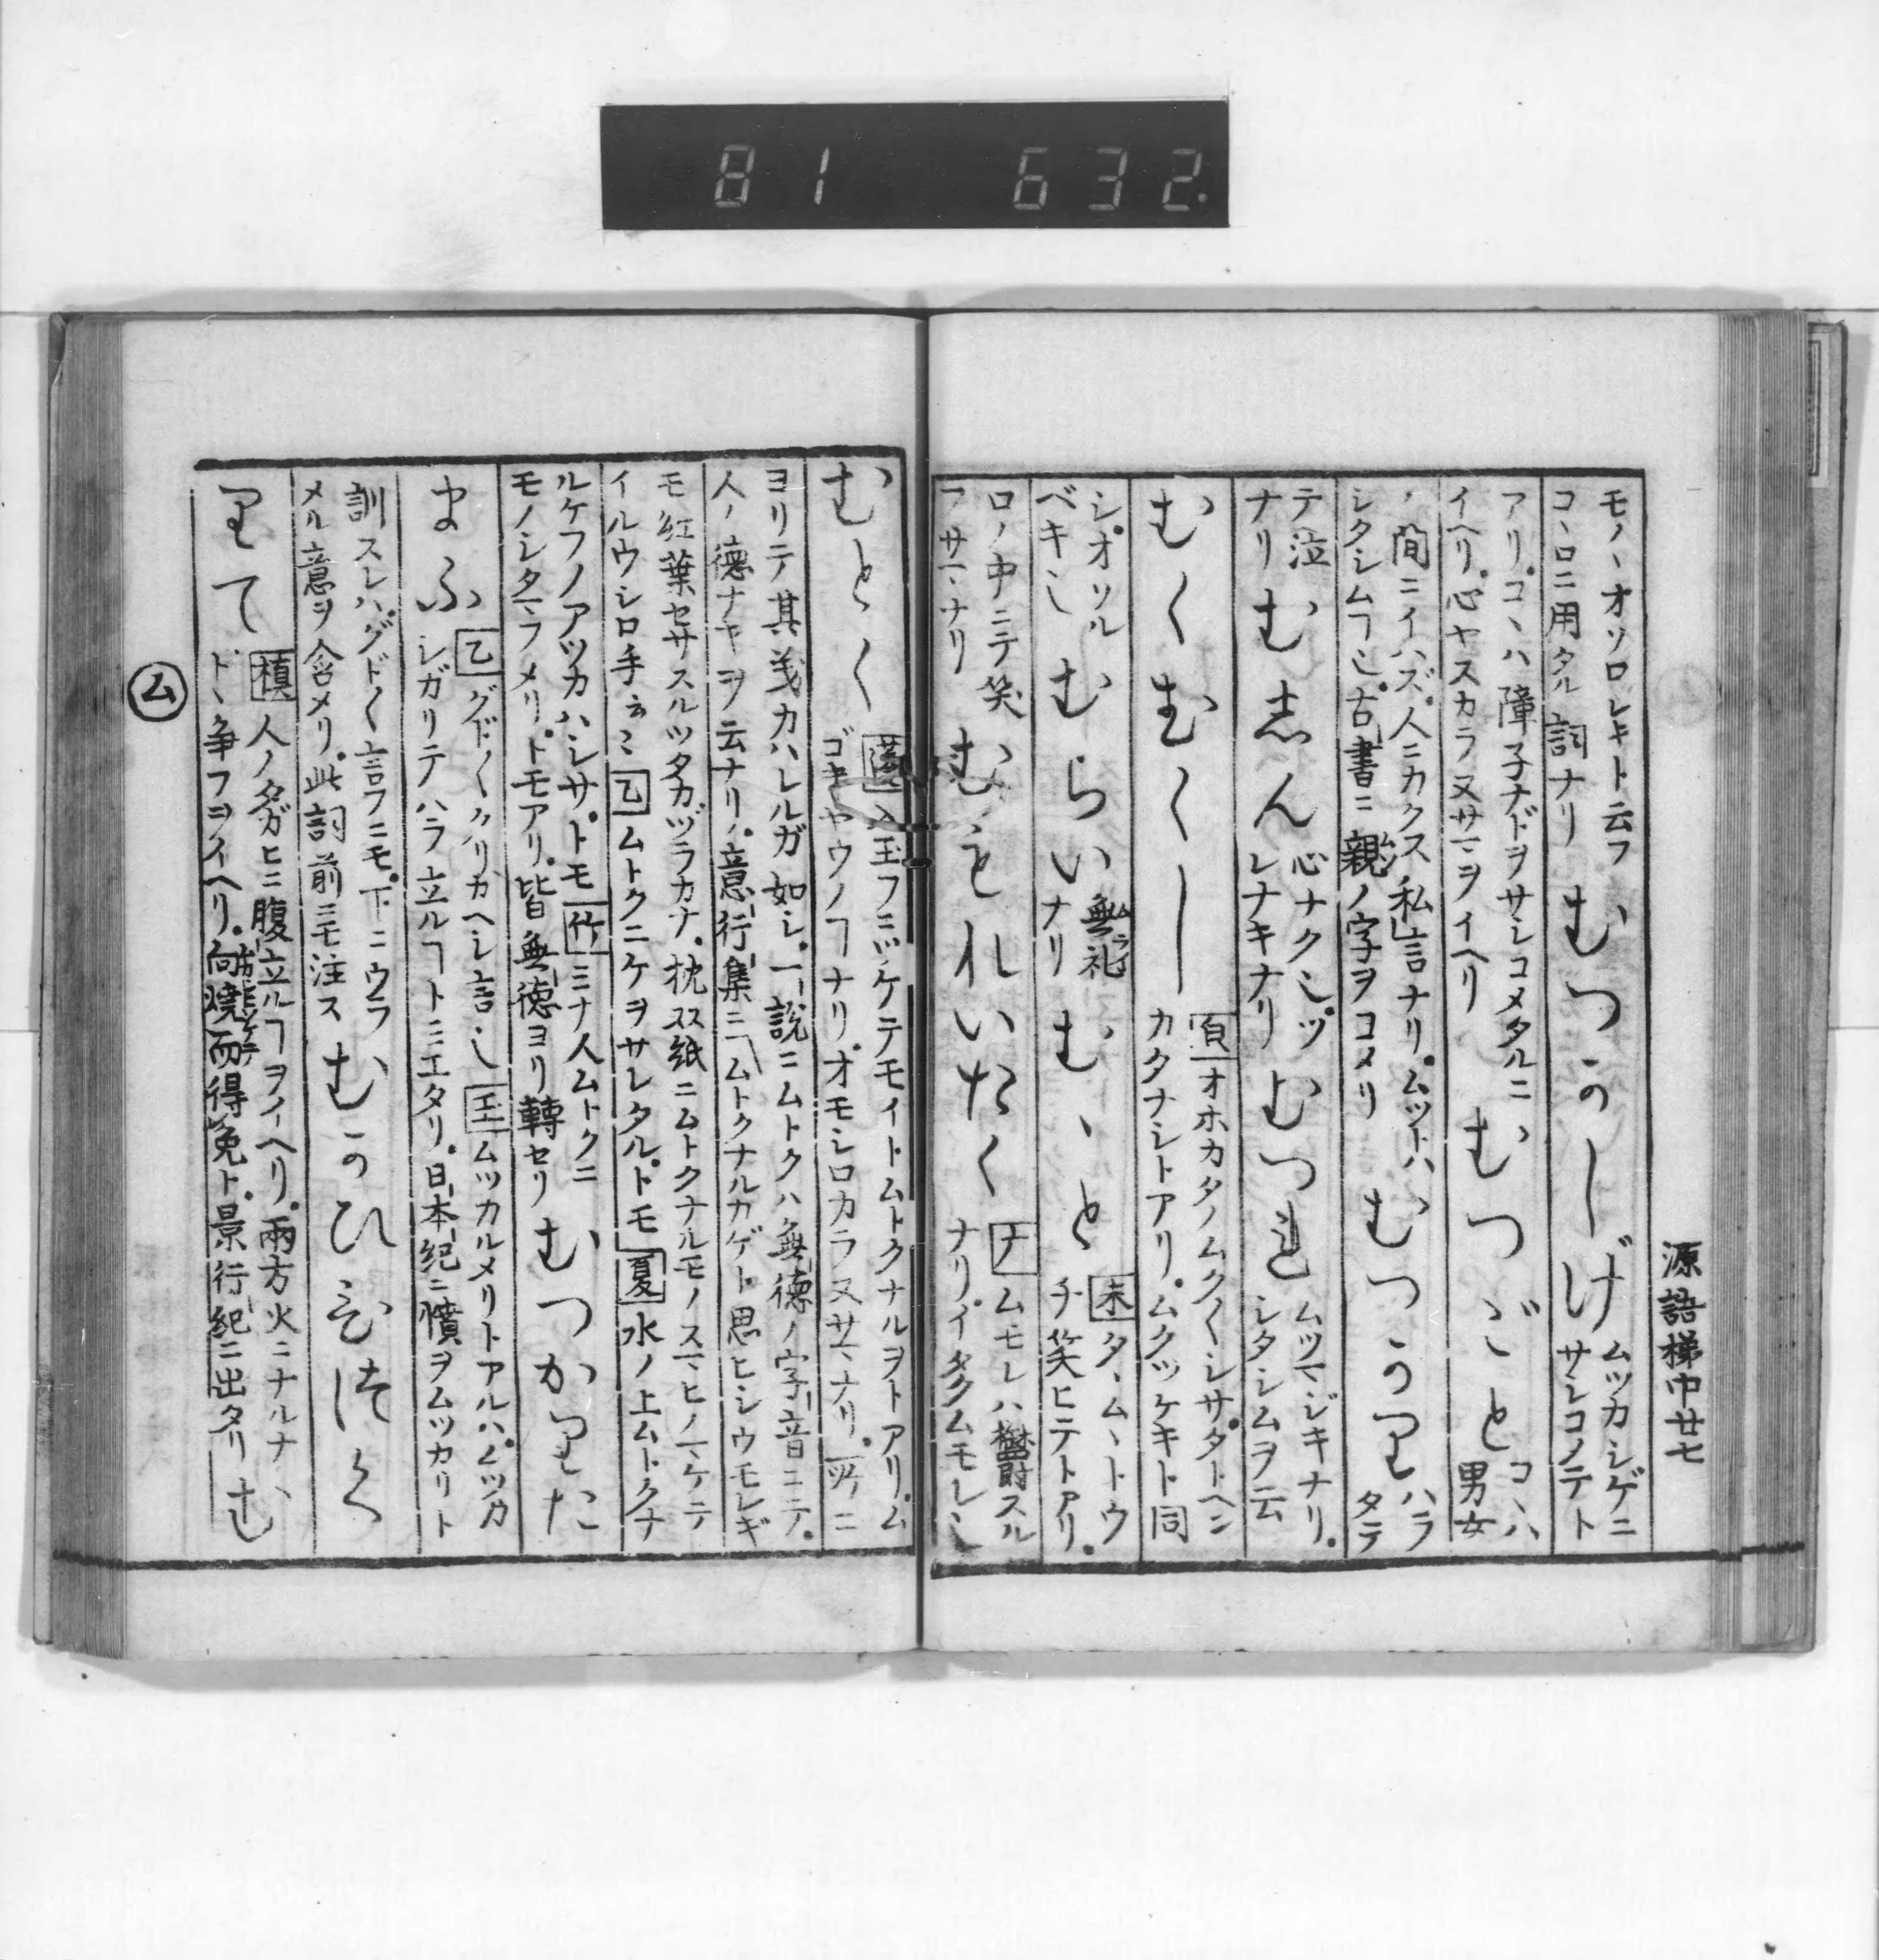 81 632.
源語梯中廿七
モノヽオソロシキト云フ
コヽロニ用タル詞ナリ
むつかしげ
ムツカシゲニ
サシコメテト
アリ。コヽハ障子ナドヲサシコメタルニ
イヘリ。心ヤスカラヌサマヲイヘリ
むつごと
コハ
男女
ノ間ニイハズ。人ニカクス私言ナリ。ムツトハ
シタシムヿ也。古書ニ親ノ字ヲコメリ
むつかり
ハラ
タテ
テ泣
ナリ
むしん
心ナクシツ
レナキナリ
むつれ
ムツマジキナリ。
シタシムヲ云
むくむくし
オホカタノムク〱シサ。タトヘン
カタナシトアリ。ムクツケキト同
シ。オソル
ベキ也
むらい
無礼
ナリ
むゝと
末 タヽムヽトウ
チ笑ヒテトアリ。
ロノ中ニテ笑
フサマナリ
むもれいたく
ナ ムモレハ欝スル
ナリ。イタクムモレ也
むとく
玉フミツケテモイトムトクナルヲトアリ。ム
ゴキヤウノヿナリ。オモシロカラヌサマナリ。所ニ
ヨリテ其義カハレルガ如シ。一説ニムトクハ無徳ノ字音ニテ。
人ノ徳ナキヲ云ナリ。意行集ニムトクナルカゲト思ヒシウモレギ
モ紅葉セサスルツタカヅラカナ。枕双紙ニムトクナルモノスマヒノマケテ
イルウシロ手云々 乙 ムトクニケヲサレタルトモ 夏 水ノ上ムトクナ
ルケフノアツカハシサトモ 竹 ミナ人ムトクニ
モノシタマフメリトモアリ。皆無徳ヨリ轉セリ
むつかりた
まふ
乙 グド〱クリカヘシ言也 玉 ムツカルメリトアルハムツカ
シガリテハラ立ルヿトミエタリ。日本紀ニ憤ヲムツカリト
訓スレハ。グド〱言フニモ。下ニウラ
メル意ヲ含メリ。此詞前ニモ注ス
むかひひつく
りて
槙 人ノタガヒニ腹立ルヿヲイヘリ。兩方火ニナルナ
ドヽ争フヲイヘリ。向燒而得免ト。景行紀ニ出タリ
む
ム